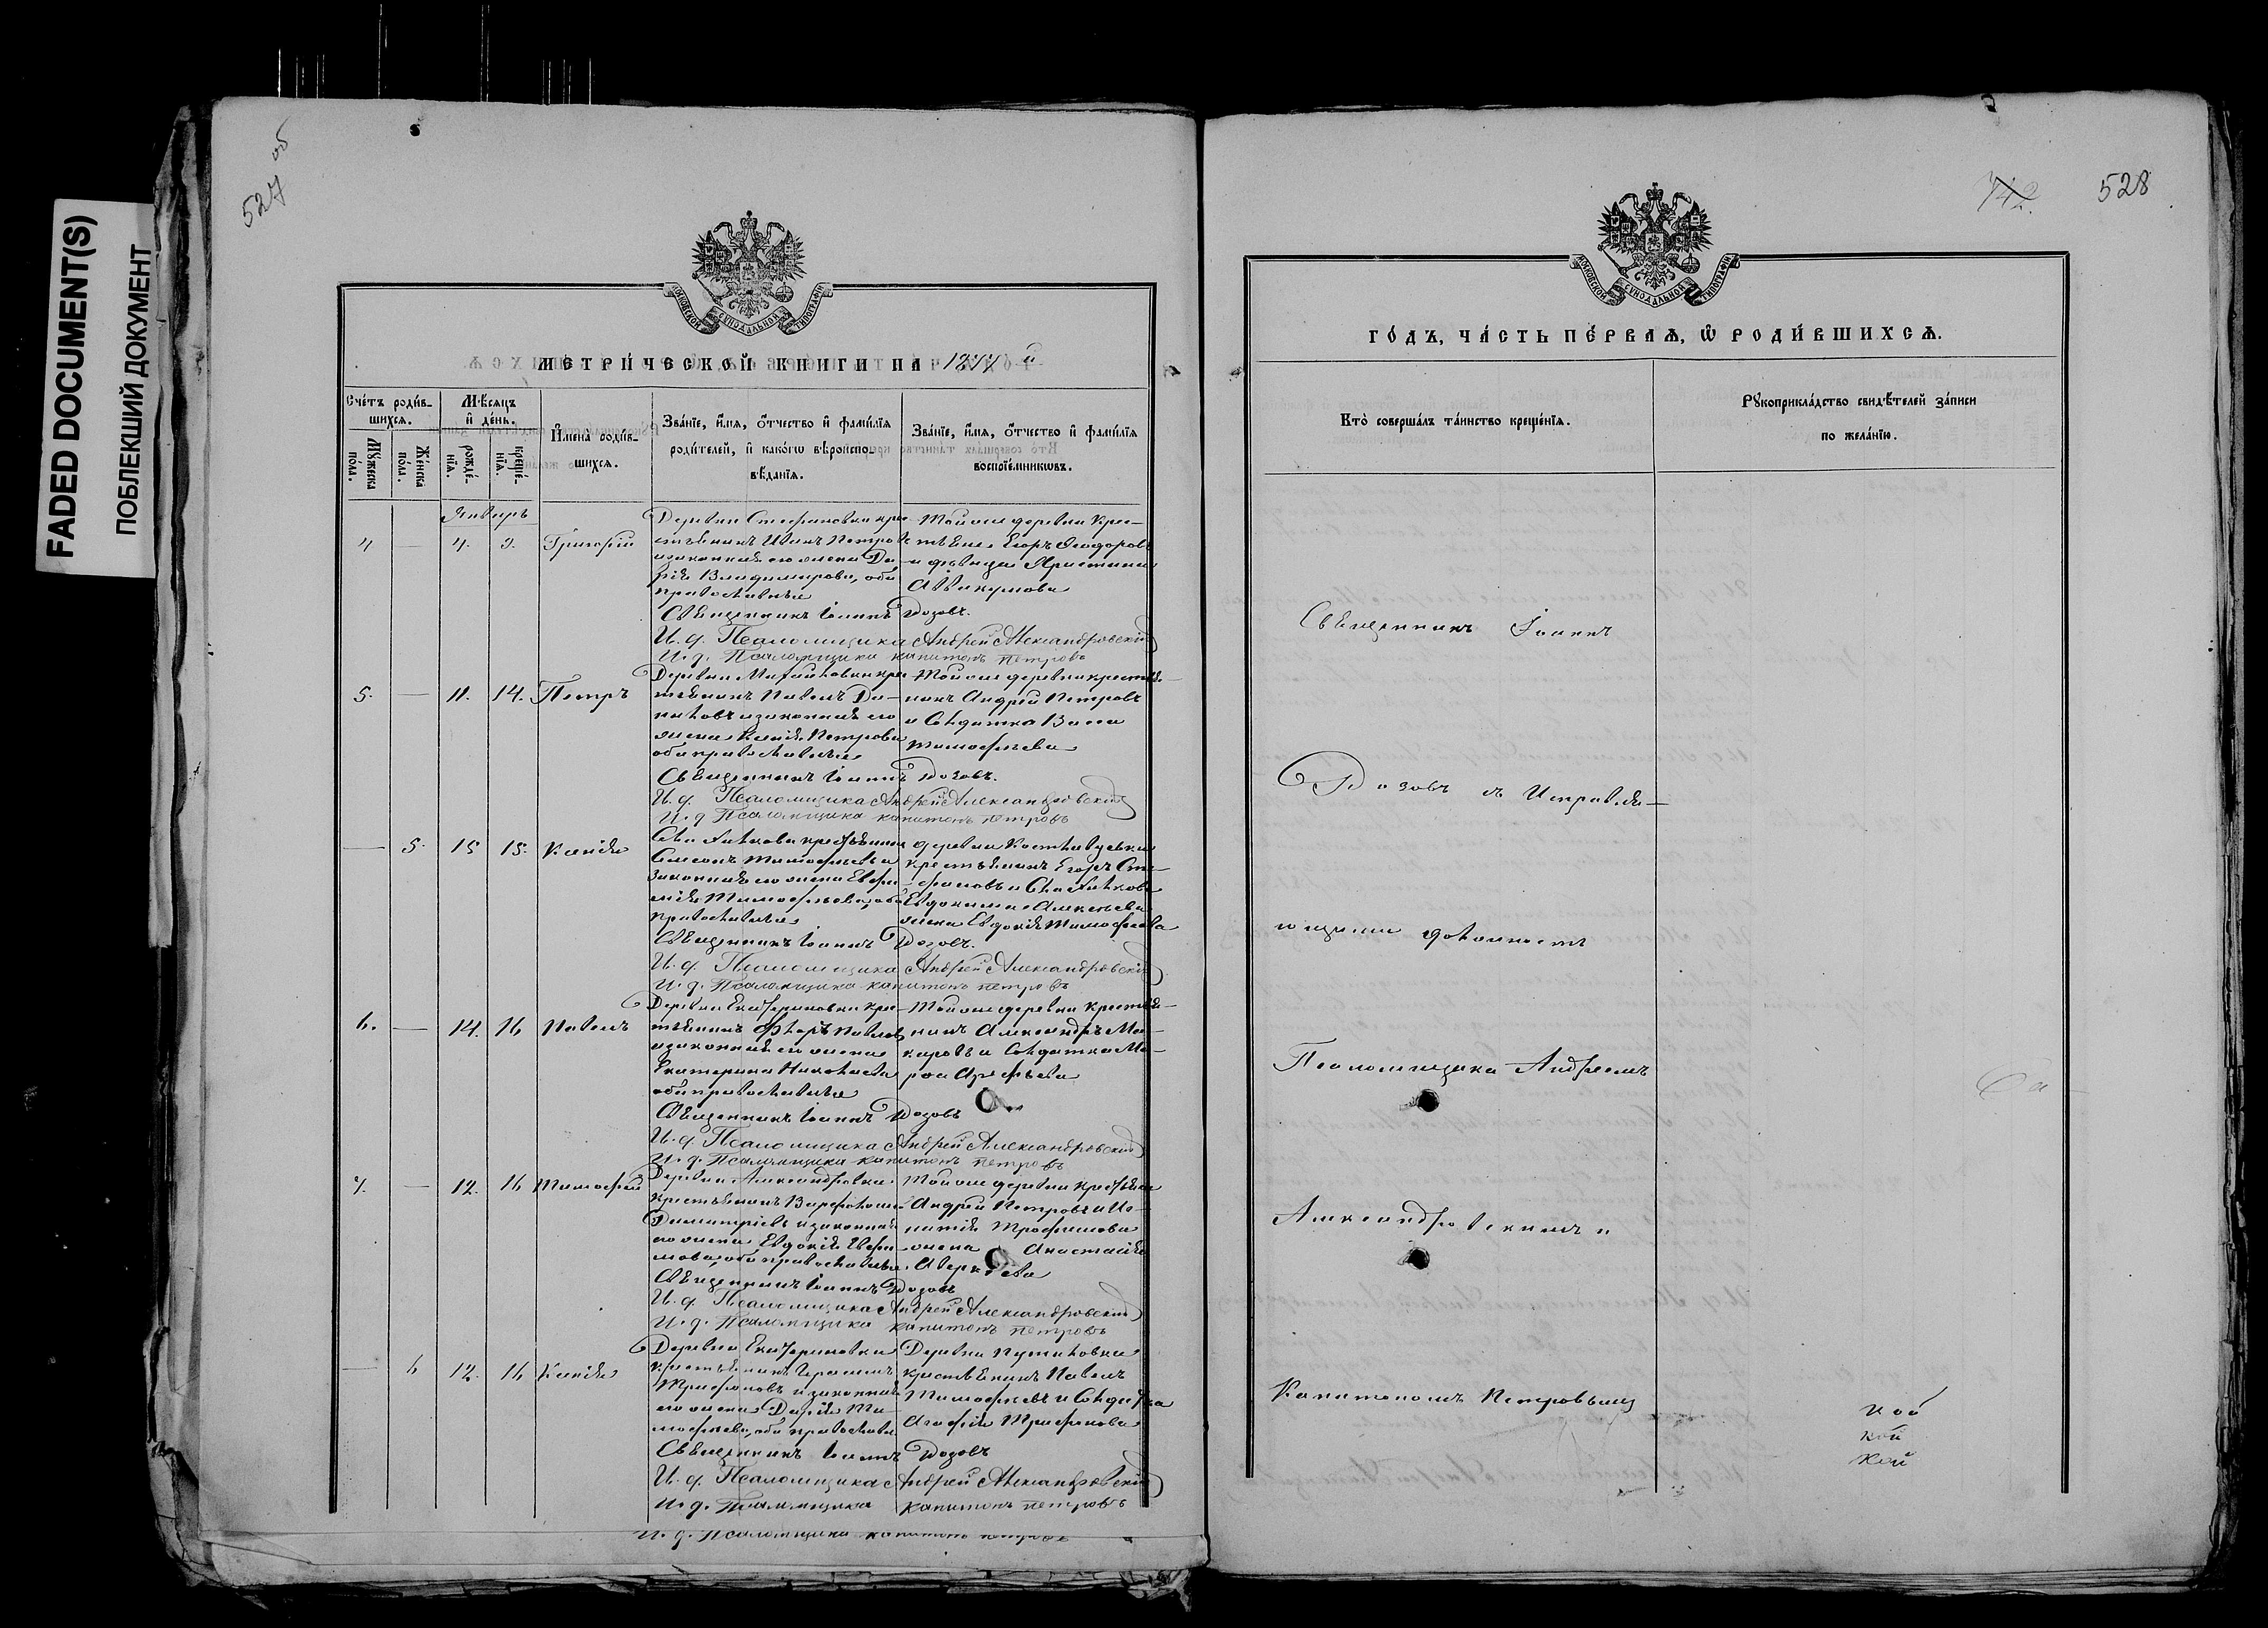 FADED DOCUMENT(S)
ПОБЛЕКШИЙ ДОКУМЕНТ
527 об
МОСКОВСКОЙ СѴНОДАЛЬНОЙ ТИПОГРАФІИ
МЕТРИ́ЧЕСКОЙ КНИГИ НА 1877 й
Сче́тъ роди́в-
шихся.
Мꙋжеска
по́ла.
Же́нска
по́ла.
Мѣ́сяцъ
и҆ де́нь.
рожде́-
нїѧ.
креще́-
нїѧ.
И҆мена̀ роди́в-
шихся.
Зва́нїе, и҆́мѧ, ѻ҆́тчество и҆ фами́лїѧ
роди́телей, и҆ какѡ́гѡ вѣроисповѣ́данїѧ.
Зва́нїе, и҆́мѧ, ѻ҆́тчество и҆ фами́лїѧ
воспрїе́мникѡвъ.
Январь
4 — 4. 9. Григорій
Деревни Стефановки кре-
стьянинъ Иванъ Петровъ
и законная его жена Да-
рія Владимирова, оба
православные
Той же деревни Кре-
стьянинъ Егоръ Ѳеодоровъ
и дѣвица Христина
Аввакумова
Священникъ Іоаннъ Розовъ.
И. д. Псаломщика Андрей Александровскій
И. д. Псаломщика Капитонъ Петровъ
5. — 11. 14. Петръ
Деревни Михайловки кре-
стьянинъ Павелъ Да-
ниловъ и законная его
жена Ксенія Петрова
оба православные
Той же деревни крестья-
нинъ Андрей Петровъ
и Солдатка Васса
Тимофѣева
Священникъ Іоаннъ Розовъ.
И. д. Псаломщика Андрей Александровскій
И. д. Псаломщика Капитонъ Петровъ
— 5. 15 15. Ксенія
крестьянинъ
Симеонъ Тимофѣевъ и
законная его жена Евфи-
мія Тимофѣева, оба
православные
деревни
крестьянинъ Егоръ Сте-
фановъ и
Евдокима Алексѣева
жена Евдокія Тимофѣева
Священникъ Іоаннъ Розовъ.
И. д. Псаломщика Андрей Александровскій
И. д. Псаломщика Капитонъ Петровъ
6. — 14. 16 Павелъ
Деревни Екатериновки кре-
стьянинъ Флоръ Павловъ
и законная его жена
Екатерина Николаева
оба православные
Той же деревни крестья-
нинъ Александръ Ма-
каровъ и Солдатка Ма-
рѳа Арефьева
Священникъ Іоаннъ Розовъ
И. д. Псаломщика Андрей Александровскій
И. д. Псаломщика Капитонъ Петровъ
7. — 12. 16 Тимофей
Деревни Александровки
крестьянинъ Варфоломей
Димитріевъ и законная
его жена Евдокія Евфи-
мова, оба православные
Той же деревни крестьянинъ
Андрей Петровъ и Иг-
натія Трофимова
жена Анастасія
Аверкіева
Священникъ Іоаннъ Розовъ
И. д. Псаломщика Андрей Александровскій
И. д. Псаломщика Капитонъ Петровъ
— 6 12. 16 Ксенія
Деревни Екатериновки
крестьянинъ Герасимъ
Трифоновъ и законная
его жена Дарія Ти-
мофѣева, оба православн.
Деревни Путиловки
крестьянинъ Павелъ
Тимофѣевъ и Солдатка
Агафія Трифонова
Священникъ Іоаннъ Розовъ
И. д. Псаломщика Андрей Александровскій
И. д. Псаломщика Капитонъ Петровъ
И. д. Псаломщика Капитонъ Петровъ
742. 528
МОСКОВСКОЙ СѴНОДАЛЬНОЙ ТИПОГРАФІИ
ГО́ДЪ, ЧА́СТЬ ПЕ́РВАѦ, Ѽ РОДИ́ВШИХСѦ.
Кто̀ соверша́лъ та́инство креще́нїѧ.
Рꙋкоприкла́дство свидѣ́телей за́писи
по жела́нїю.
Священникъ Іоаннъ
Розовъ съ Исправля-
ющими должность
Псаломщика Андреемъ
Александровскимъ и
Капитономъ Петровымъ
кой
кой